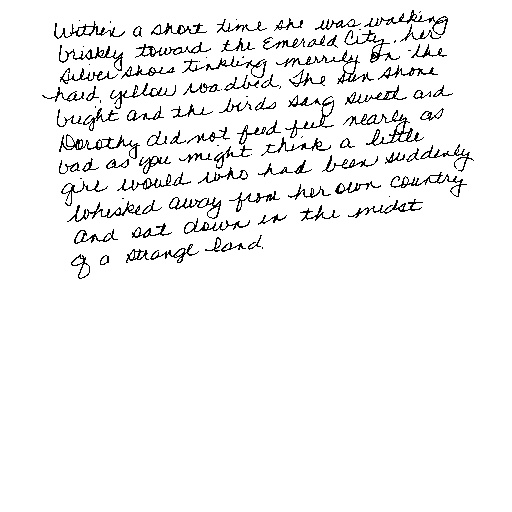 Within a short time she was walking
briskly toward the Emerald City, her
Silver Shoes tinkling merrily on the
hard, yellow roadbed. The sun shone
bright and the birds sang sweet and
Dorothy did not feed feel nearly as
bad as you might think a little
girl would who had been suddenly
whisked away from her own country
and sat down in the midst
of a strange land.